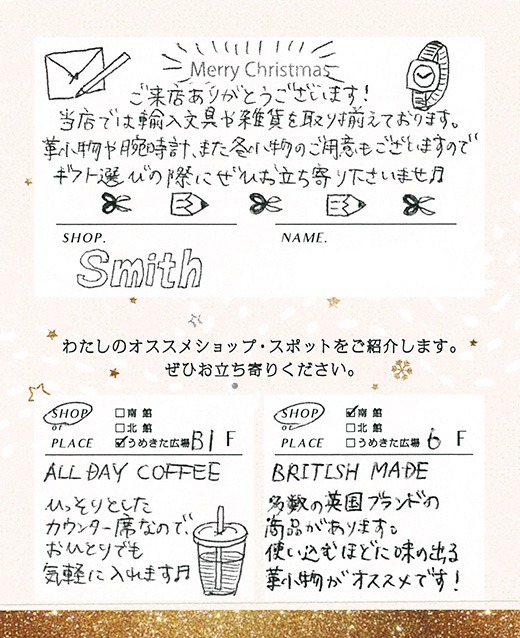 Merry Christmas
ご来店ありがとうございます!
当店では輸入文具や雑貨を取り揃えております。
革小物や腕時計、また冬小物のご用意もございますので
ギフト選びの際にぜひお立ち寄り下さいませ♫
SHOP.
NAME.
Smith
わたしのオススメショップ・スポットをご紹介します。
ぜひお立ち寄りください。
SHOP
or
PLACE
□南館
□北館
☑うめきた広場 B1 F
ALL DAY COFFEE
ひっそりとした
カウンター席なので、
おひとりでも
気軽に入れます♫
SHOP
or
PLACE
☑南館
□北館
□うめきた広場 6 F
BRITISH MADE
多数の英国ブランドの
商品があります。
使い込むほどに味の出る
革小物がオススメです!